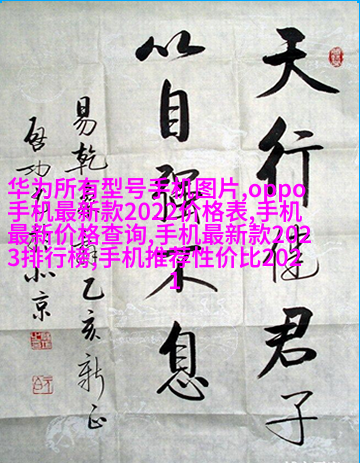 天行健君子
以自強不息
易乾乙亥新正
啟功北京
华为所有型号手机图片,oppo
手机最新款2022价格表,手机
最新价格查询,手机最新款202
3排行榜,手机推荐性价比202
1